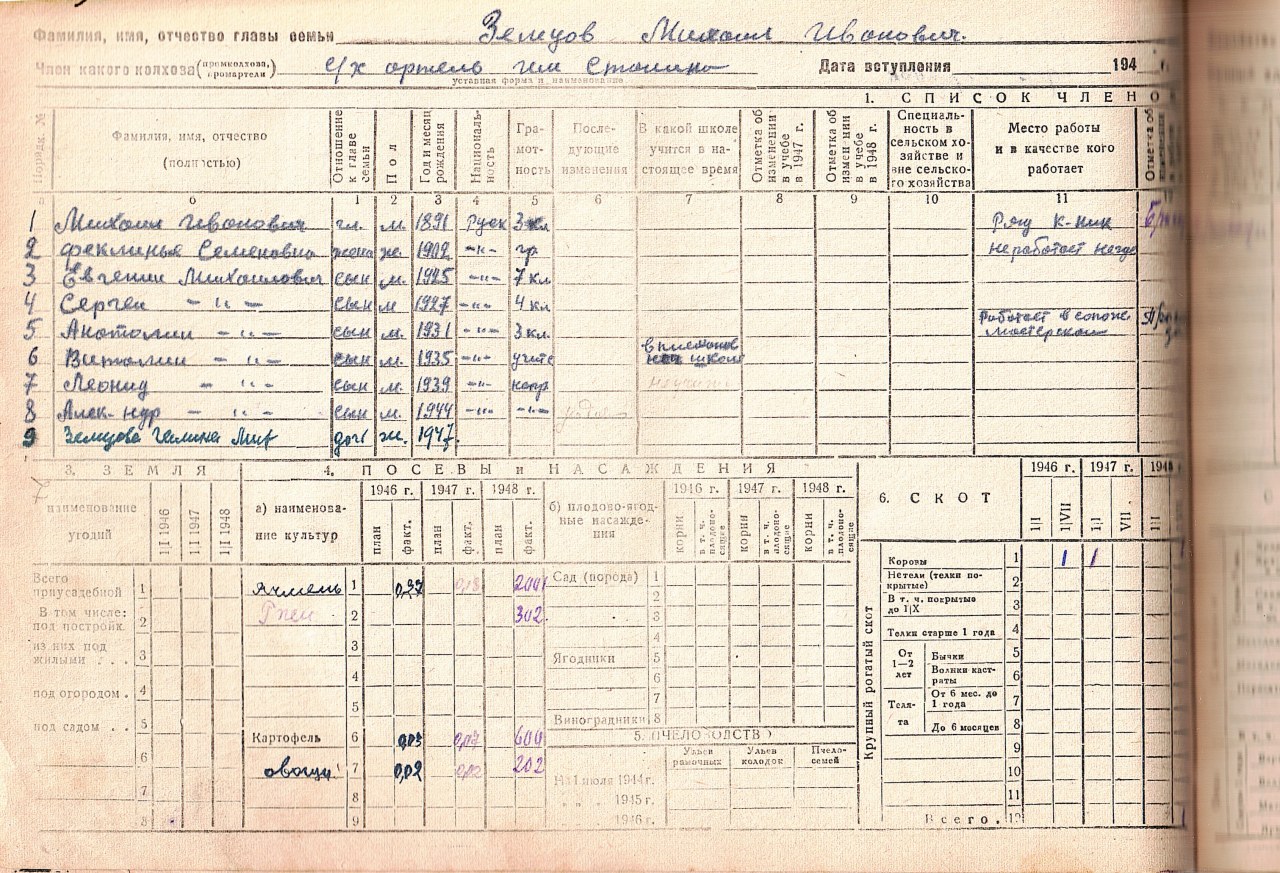 Фамилия, имя, отчество главы семьи Земцов Михаил Иванович.
Член какого колхоза (промколхоза, промартели) с/х артель им Сталина Дата вступления 194
уставная форма и наименование
1. СПИСОК ЧЛЕНО
Порядк. № Фамилия, имя, отчество (полностью) Отношение к главе семьи Пол Год и месяц рождения Националь-ность Гра-мот-ность После-дующие изменения В какой школе учится в на-стоящее время Отметка об изменении в учебе в 1947 г. Отметка об измен-нии в учебе в 1948 г. Специаль-ность в сельском хо-зяйстве и вне сельско-го хозяйства Место работы и в качестве кого работает Отметка об
1 2 3 4 5 6 7 8 9 10 11
1 Михаил Иванович гл. м. 1891 Руск 3 кл Ряд к-ник
2 Феклинья Семеновна жена ж. 1902 -"- гр. неработает негде
3 Евгений Михаилович сын м. 1925 -"- 7 кл
4 Сергеи -"- сын м 1927 -"- 4 кл
5 Анатолии -"- сын м. 1931 -"- 3 кл. Работает в сапожн мастерской
6 Виталии -"- сын м. 1935 -"- школ
7 Леонид -"- сын м. 1939 -"- негр.
8 Алек-ндр -"- сын м. 1944 -"- -"-
9 Земцова Галина Мих доч ж. 1947.
3. ЗЕМЛЯ 4. ПОСЕВЫ и НАСАЖДЕНИЯ 6. СКОТ 1946 г. 1947 г. 1948
наименование угодий 1|I 1946 1|I 1947 1|I 1948 а) наименова-ние культур 1946 г. 1947 г. 1948 г. б) плодово-ягод-ные насажде-ния 1946 г. 1947 г. 1948 г. 1|I 1|VII 1|I VII. 1|I
план факт. план факт. план факт. корни в т. ч. плодоно-сящие корни в т. ч. плодоно-сящие корни в т. ч. плодоно-сящие
Крупный рогатый скот
Коровы 1 1 1
Всего приусадебной 1 Ячмень 1 0,37 0,18 200 Сад (порода) 1
Нетели (телки по-крытые) 2
В том числе: под постройк. 2 2 302 2 3
В т. ч. покрытые до 1|X 3
из них под жилыми . . . 3 3 4
Телки старше 1 года 4
4 Ягодники 5
От 1—2 лет Бычки 5
Волики каст-раты 6
под огородом . 4 5 6 7
Теля-та От 6 мес. до 1 года 7
под садом . . 5 Виноградники 8
До 6 месяцев 8
Картофель 6 0,03 600 5. ПЧЕЛОВОДСТВО
9
6 овощи 7 0,02 0,02 202 Ульев рамочных Ульев колодок Пчело-семей
10
7 8 На 1 июля 1944 г.
11
" " 1945 г.
8 9 1946 г.
Всего . 12